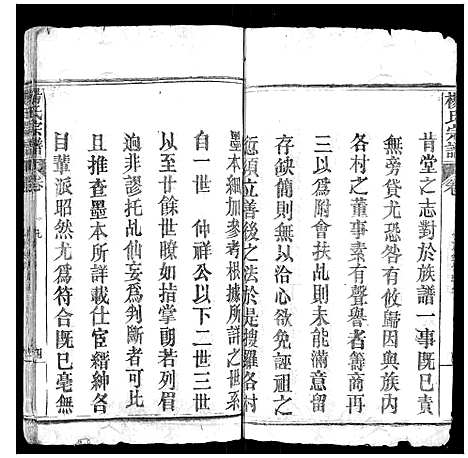 楊氏宗譜
肯堂之志對於族譜一事既已責
無旁貸尤恐咎有攸歸因與族內
各村之董事素有聲譽者籌商再
三以爲附會扶乩則未能滿意留
存缺簡則無以洽心欲免誣祖之
愆須立善後之法於是搜羅各村
墨本細加參考根據所詳之世系
自一世 仲祥公以下二世三世
以至廿餘世瞭如指掌朗若列眉
迥非謬托乩仙妄爲判斷者可比
且推查墨本所詳載仕宦縉紳各
目輩派昭然尤爲符合既已毫無
楊氏宗譜 卷
四